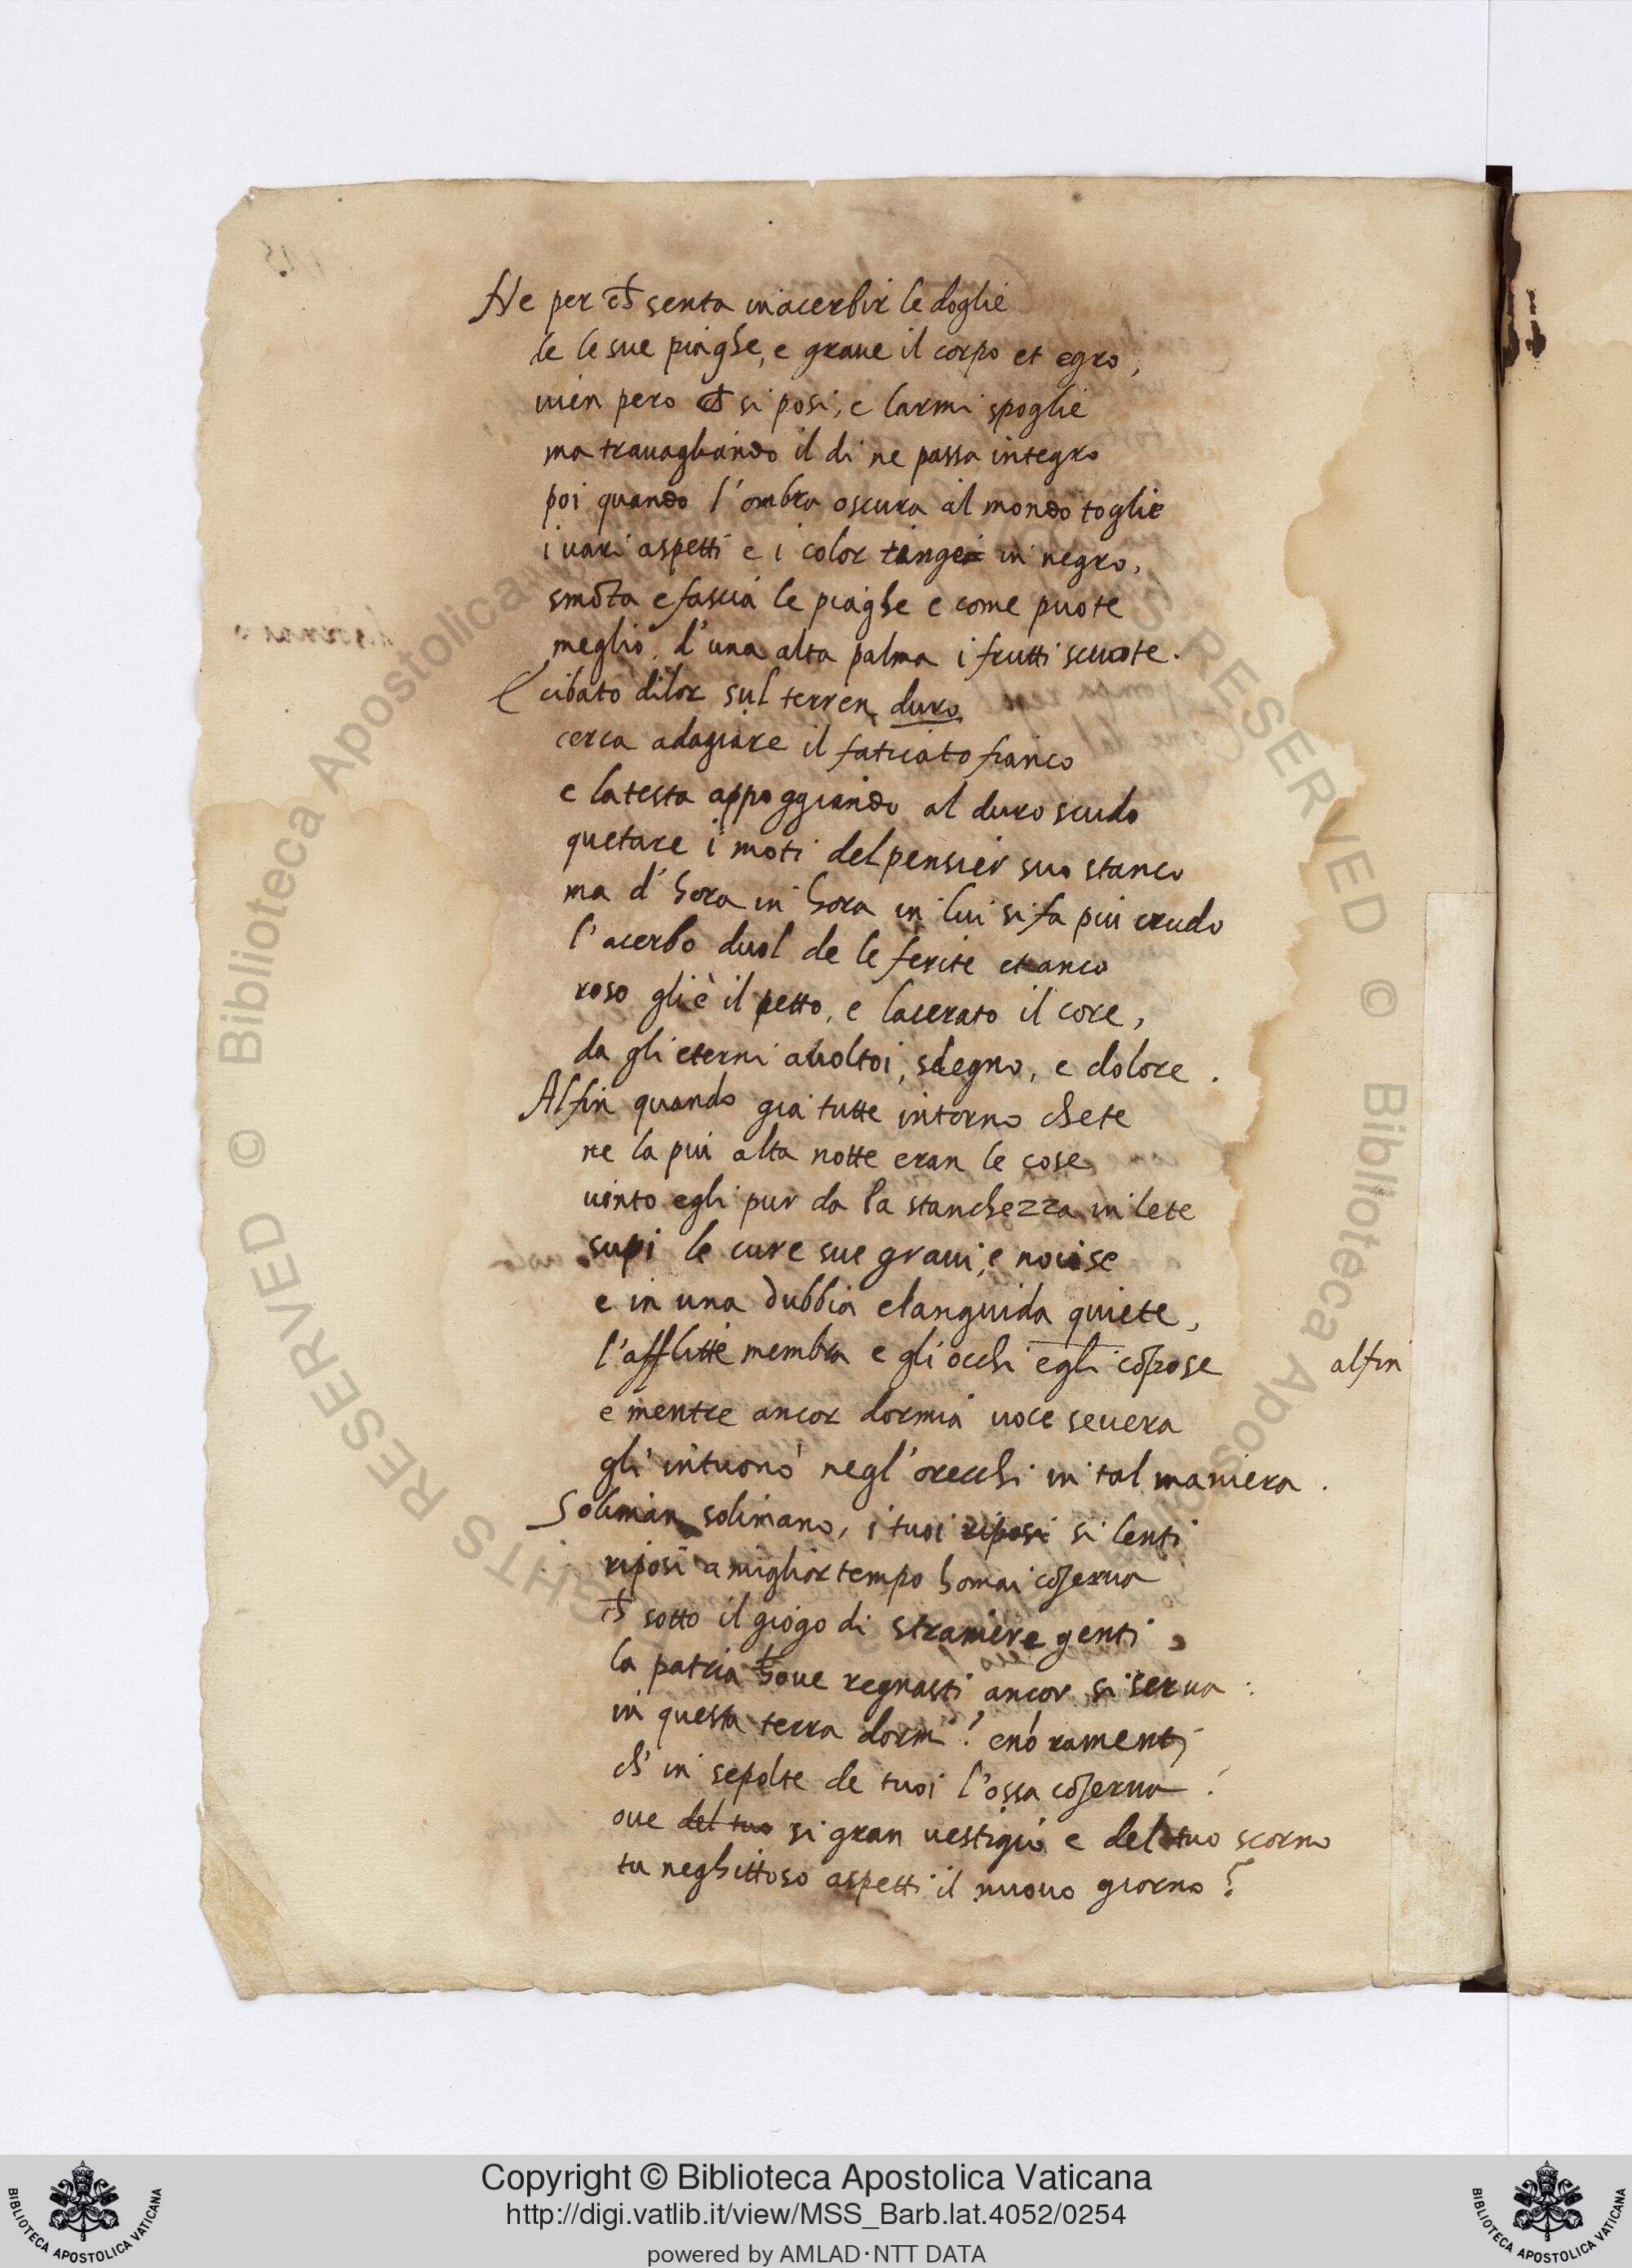 Ne per ch̄ senta inacerbir le doglie
le le sue piaghe, e graue il corpo et egro,
vien pero ch̄ si posi, e larmi spoglie
ma trauagliando il di ne passa integro
poi quando l'ombra oscura al mondo toglie
i vari aspetti e i color tinge in negro,
smōta e fascia le piaghe e come puote
meglio, d'una alta palma i frutti scuote.
E cibato di lor sul terren duro
cerca adagiare il faticato fianco
e la testa appoggiando al duro scudo
quetare i moti del pensier suo stanco
ma d'hora in hora in lui si fa piu crudo
l'acerbo duol de le ferite et anco
roso gli è il petto, e lacerato il core,
da gli eterni auoltoi, sdegno, e dolore.
Alfin quando gia tutte intorno chete
ne la piu alta notte eran le cose
uinto egli pur da la stanchezza in lete
sopi le cure sue graui, e noiose
e in una dubbia e languida quiete,
l'afflitte membra e gli occhi egli cōpose
alfin
e mentre ancor dormia uoce seuera
gli intuonò negl'orecchi in tal maniera.
Soliman solimano, i tuoi riposi si lenti
riposi a miglior tempo homai cōserua
ch̄ sotto il giogo di straniere genti
la patria houe regnasti ancor si serua:
in questa terra dormi? e nō ramenti
ch' in sepolte de tuoi l'ossa cōserua?
oue del tuo si gran uestigio e del tuo scorno
tu neghittoso aspetti il nuouo giorno?
Copyright © Biblioteca Apostolica Vaticana
http://digi.vatlib.it/view/MSS_Barb.lat.4052/0254
powered by AMLAD·NTT DATA